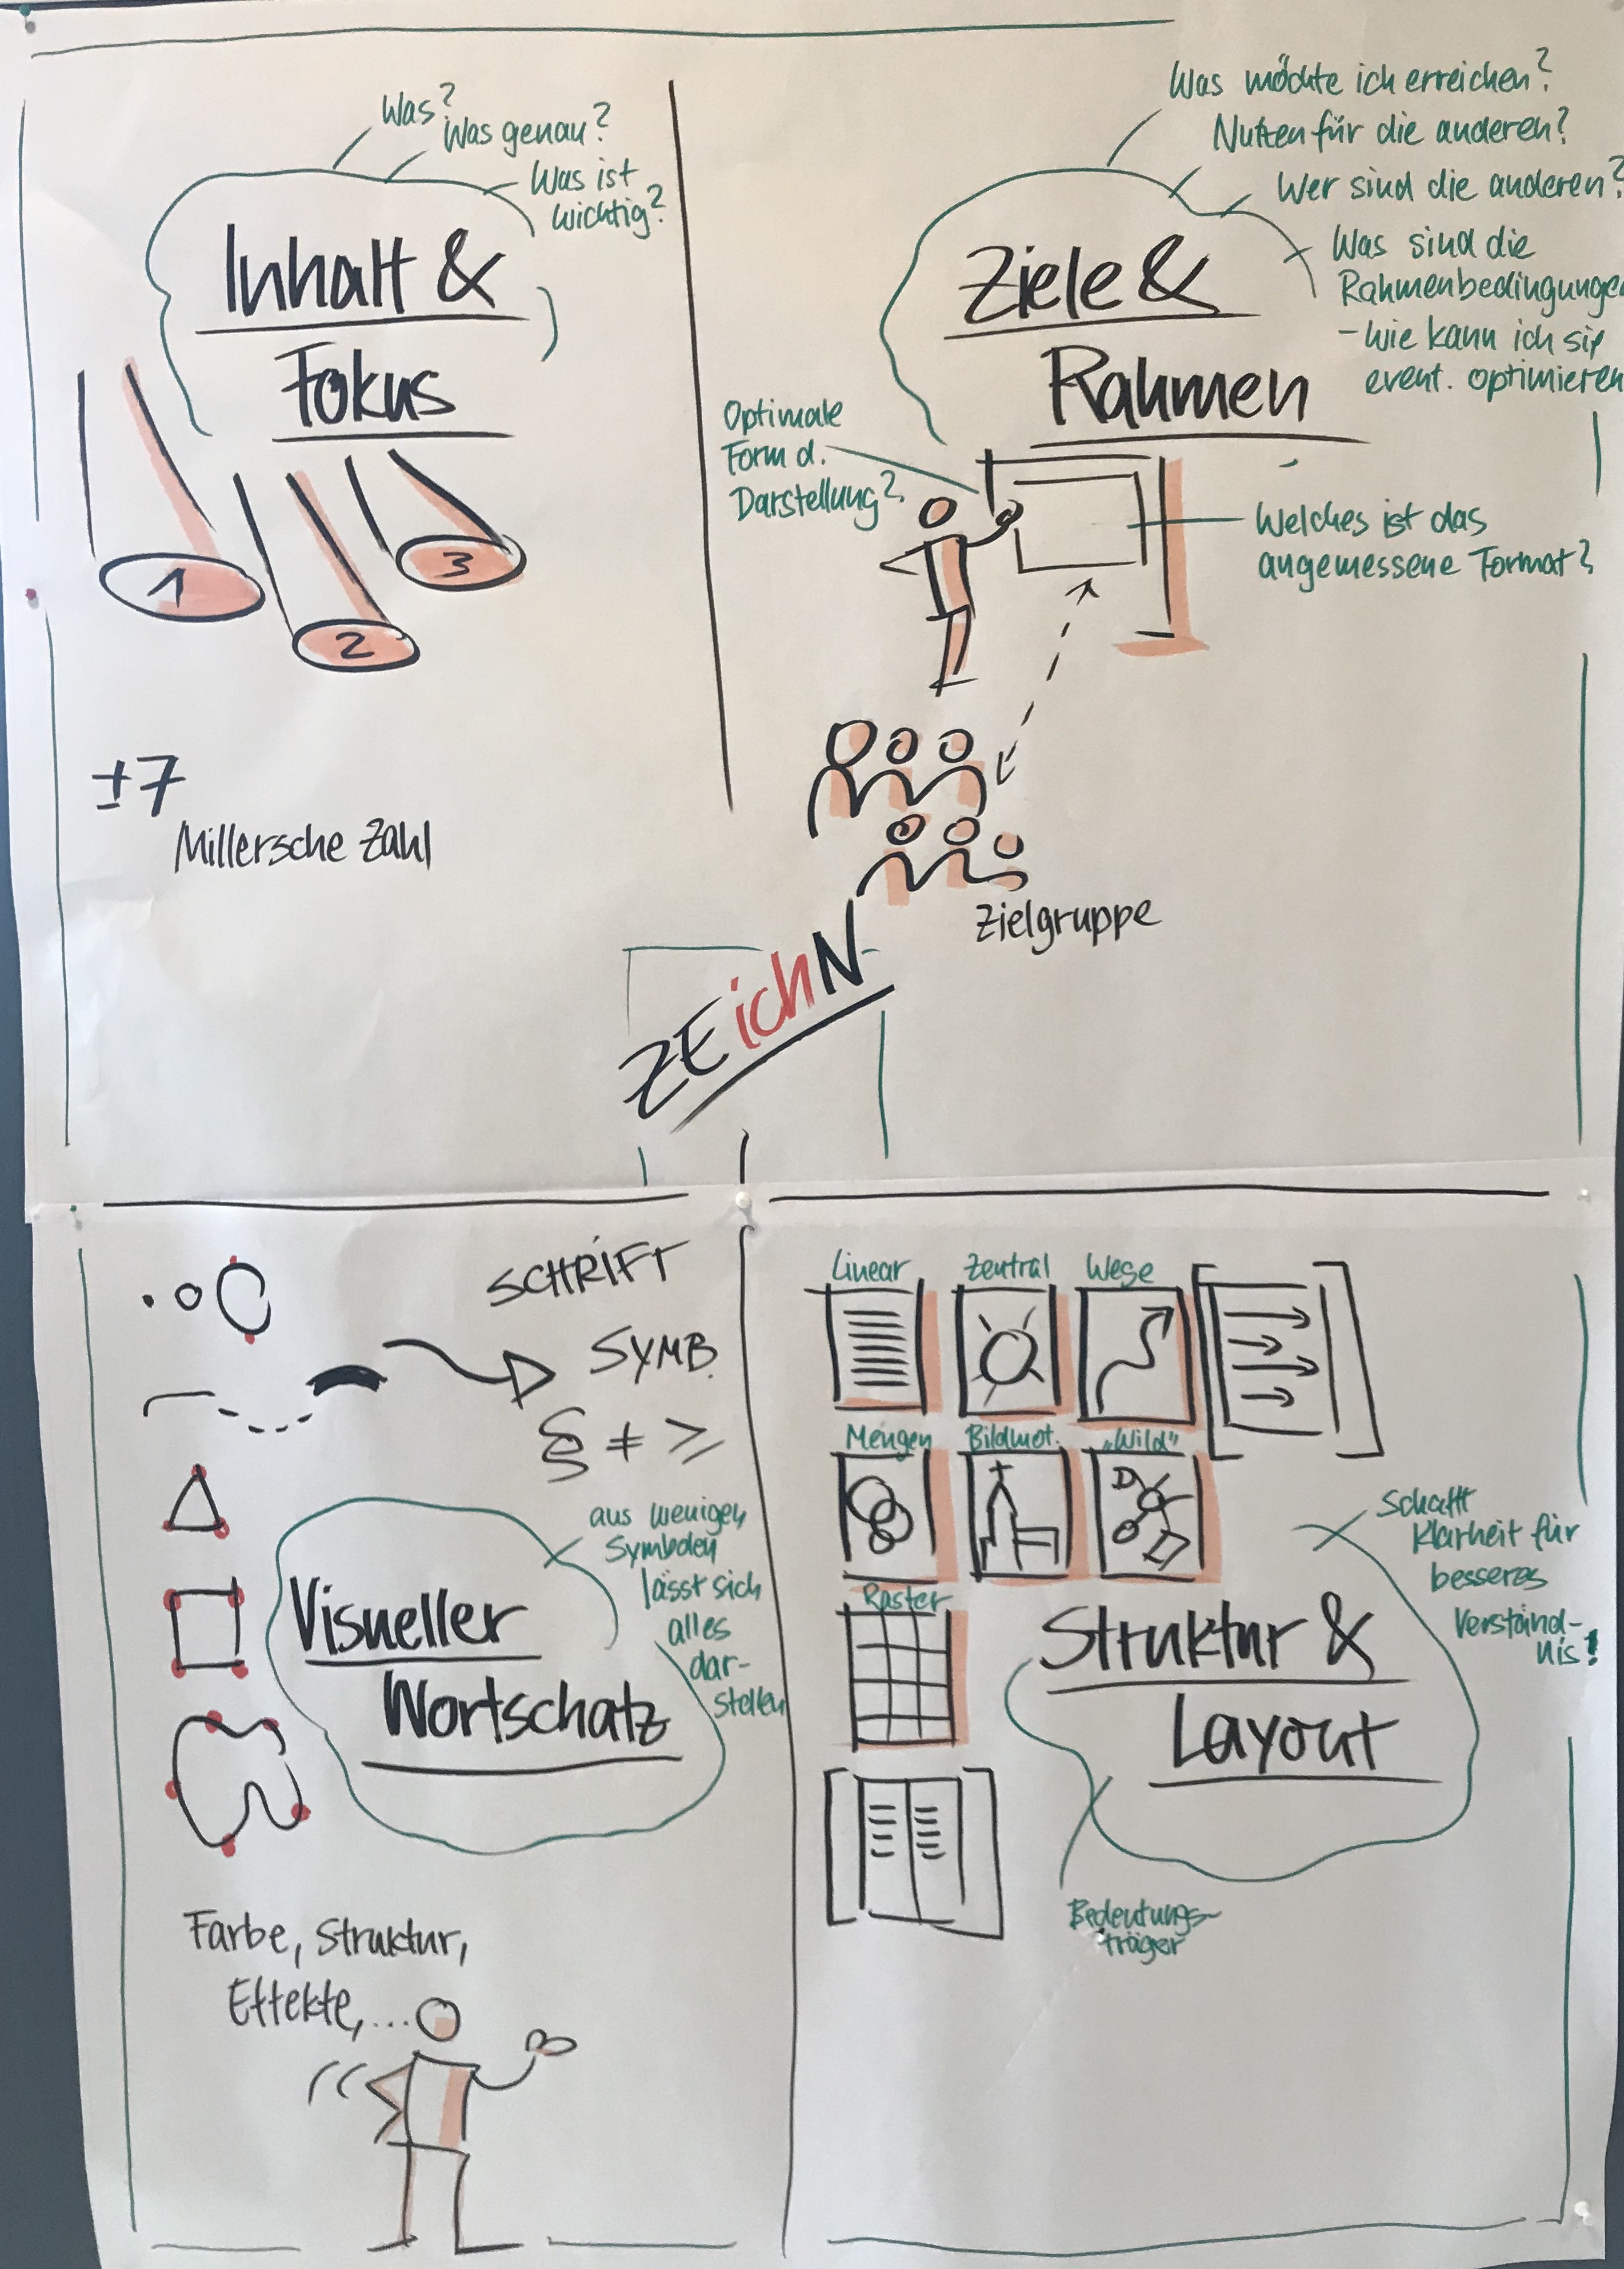 Was?
Was genau?
Was ist
wichtig?
Inhalt &
Fokus
1
2
3
±7
Millersche Zahl
Was möchte ich erreichen?
Nutzen für die anderen?
Wer sind die anderen?
Was sind die
Rahmenbedingungen
- wie kann ich sie
event. optimieren
Ziele &
Rahmen
Optimale
Form d.
Darstellung?
Welches ist das
angemessene Format?
Zielgruppe
ZEichN
SCHRIFT
SYMB.
§ ≠ ≥
aus wenigen
Symbolen
lässt sich
alles
dar-
stellen
Visueller
Wortschatz
Farbe, Struktur,
Effekte,...
Linear
Zentral
Wege
Mengen
Bildmot.
„Wild"
Raster
Schafft
Klarheit für
besseres
Verständ-
nis!
Struktur &
Layout
Bedeutungs-
träger